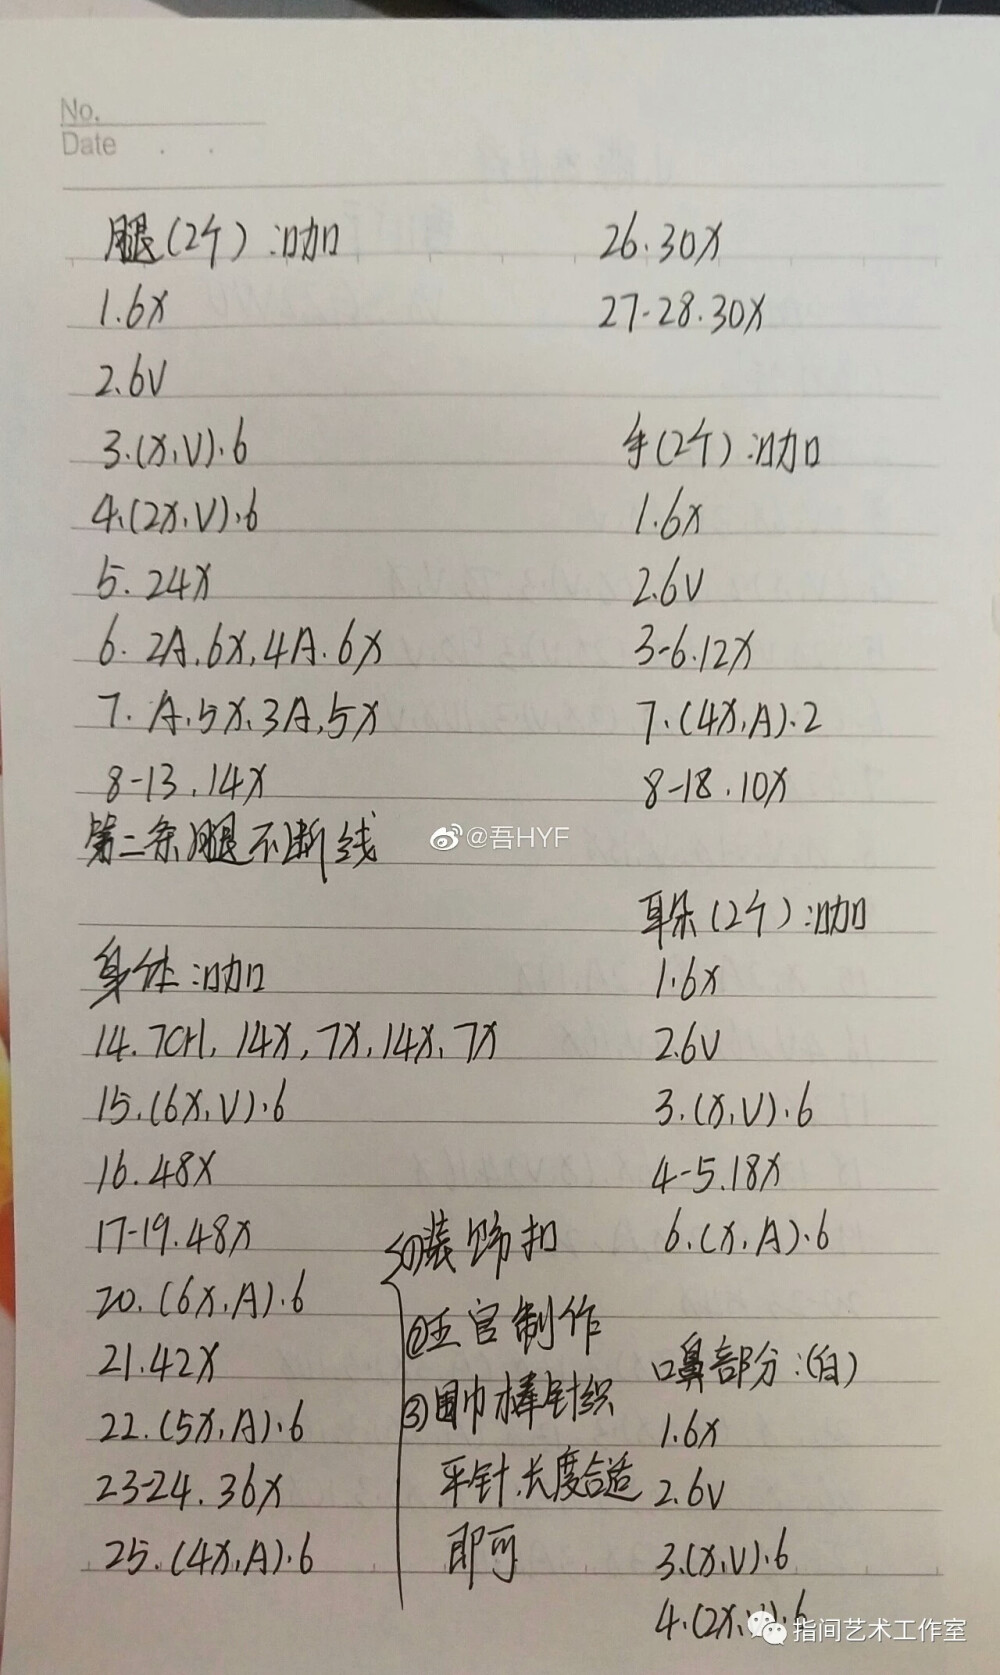 No.
Date
腿(2个):咖
1.6X
2.6V
3.(X,V).6
4.(2X,V).6
5.24X
6.2A,6X,4A.6X
7.A,5X,3A,5X
8-13.14X
第二条腿不断线
身体:咖
14.7CH,14X,7X,14X,7X
15.(6X,V).6
16.48X
17-19.48X
20.(6X,A).6
21.42X
22.(5X,A).6
23-24.36X
25.(4X,A).6
①装饰扣
②五官制作
③围巾棒针织
平针,长度合适
即可
26.30X
27-28.30X
手(2个):咖
1.6X
2.6V
3-6.12X
7.(4X,A).2
8-18.10X
@吾HYF
耳朵(2个):咖
1.6X
2.6V
3.(X,V).6
4-5.18X
6.(X,A).6
口鼻部分:(白)
1.6X
2.6V
3.(X,V).6
4.(2X,V).6
指间艺术工作室